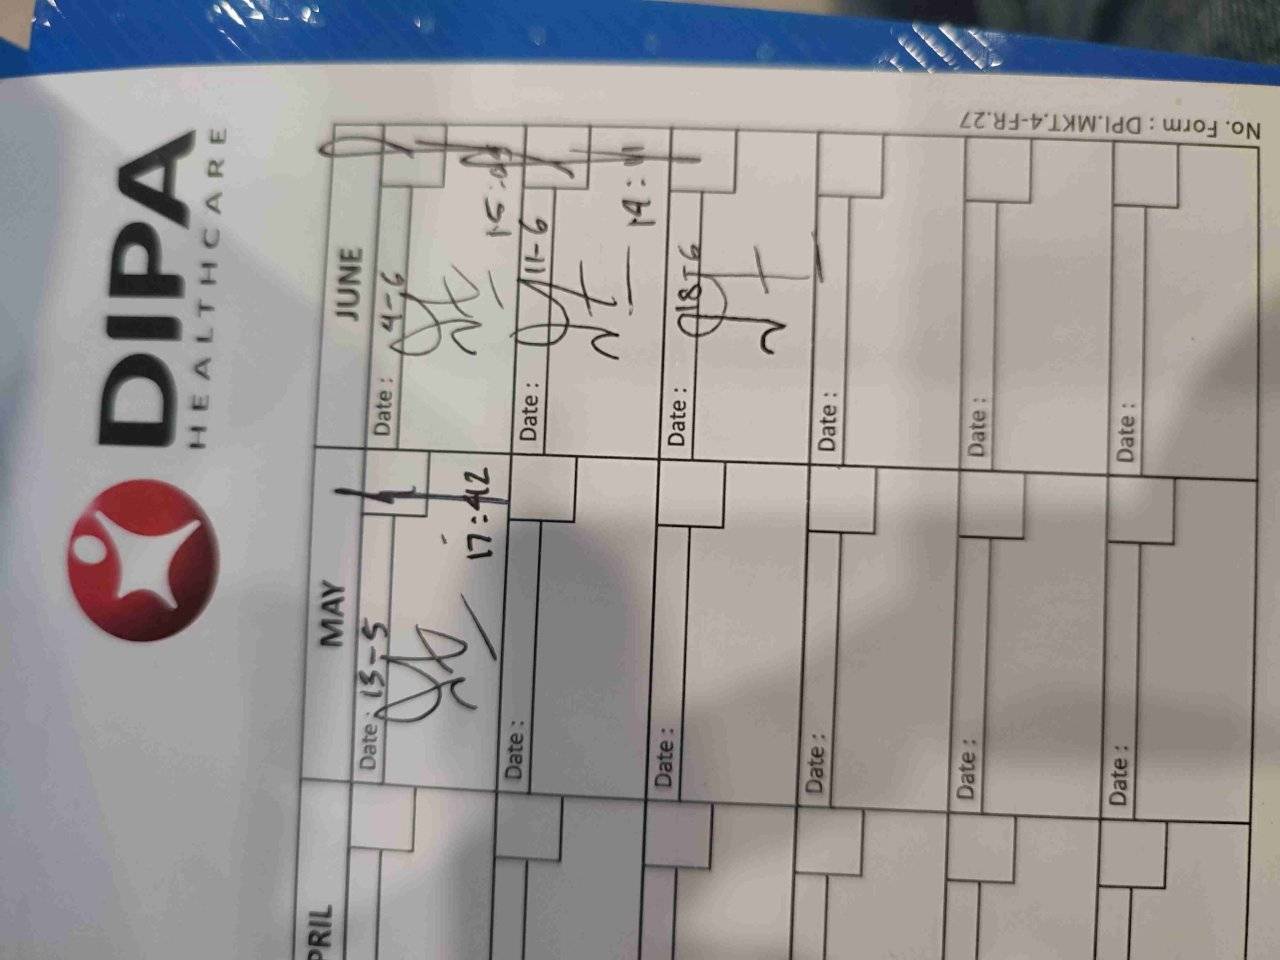 DIPA
HEALTHCARE
No. Form : DPI.MKT.4-FR.27
PRIL
MAY
JUNE
Date : 13-5
17:42
Date : 4-6
Date :
Date : 11-6
Date :
Date : 18-6
Date :
Date :
Date :
Date :
Date :
Date :